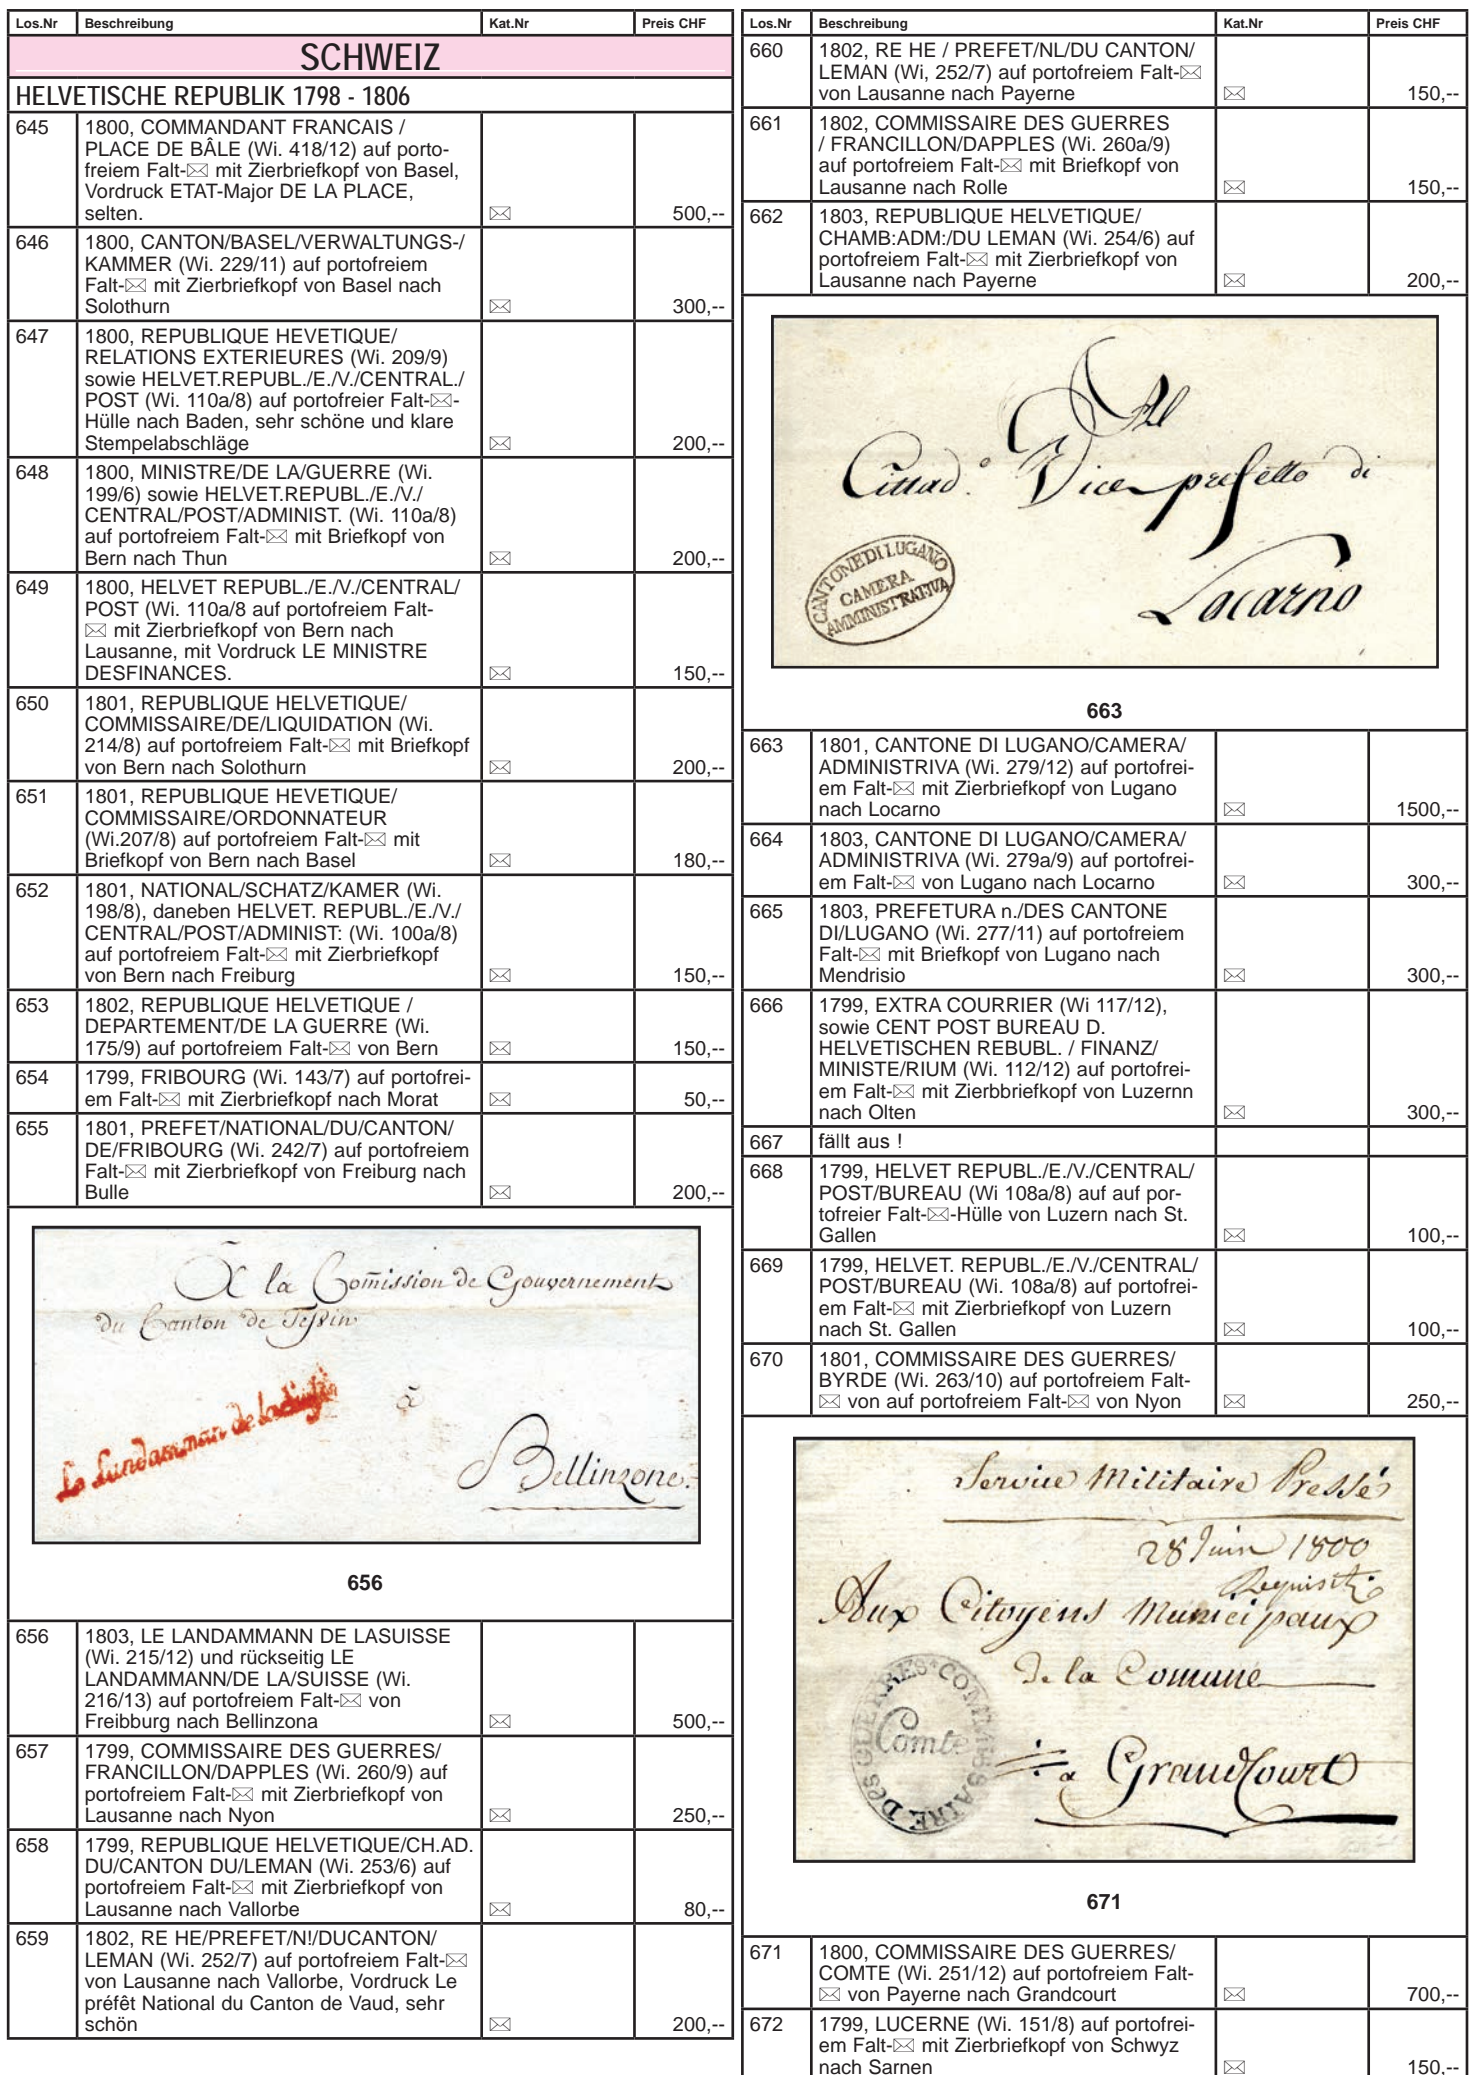 Los.Nr Beschreibung Kat.Nr Preis CHF
SCHWEIZ
HELVETISCHE REPUBLIK 1798 - 1806
645 1800, COMMANDANT FRANCAIS /
PLACE DE BÂLE (Wi. 418/12) auf porto-
freiem Falt-✉ mit Zierbriefkopf von Basel,
Vordruck ETAT-Major DE LA PLACE,
selten. ✉ 500,--
646 1800, CANTON/BASEL/VERWALTUNGS-/
KAMMER (Wi. 229/11) auf portofreiem
Falt-✉ mit Zierbriefkopf von Basel nach
Solothurn ✉ 300,--
647 1800, REPUBLIQUE HEVETIQUE/
RELATIONS EXTERIEURES (Wi. 209/9)
sowie HELVET.REPUBL./E./V./CENTRAL./
POST (Wi. 110a/8) auf portofreier Falt-✉-
Hülle nach Baden, sehr schöne und klare
Stempelabschläge ✉ 200,--
648 1800, MINISTRE/DE LA/GUERRE (Wi.
199/6) sowie HELVET.REPUBL./E./V./
CENTRAL/POST/ADMINIST. (Wi. 110a/8)
auf portofreiem Falt-✉ mit Briefkopf von
Bern nach Thun ✉ 200,--
649 1800, HELVET REPUBL./E./V./CENTRAL/
POST (Wi. 110a/8 auf portofreiem Falt-
✉ mit Zierbriefkopf von Bern nach
Lausanne, mit Vordruck LE MINISTRE
DESFINANCES. ✉ 150,--
650 1801, REPUBLIQUE HELVETIQUE/
COMMISSAIRE/DE/LIQUIDATION (Wi.
214/8) auf portofreiem Falt-✉ mit Briefkopf
von Bern nach Solothurn ✉ 200,--
651 1801, REPUBLIQUE HEVETIQUE/
COMMISSAIRE/ORDONNATEUR
(Wi.207/8) auf portofreiem Falt-✉ mit
Briefkopf von Bern nach Basel ✉ 180,--
652 1801, NATIONAL/SCHATZ/KAMER (Wi.
198/8), daneben HELVET. REPUBL./E./V./
CENTRAL/POST/ADMINIST: (Wi. 100a/8)
auf portofreiem Falt-✉ mit Zierbriefkopf
von Bern nach Freiburg ✉ 150,--
653 1802, REPUBLIQUE HELVETIQUE /
DEPARTEMENT/DE LA GUERRE (Wi.
175/9) auf portofreiem Falt-✉ von Bern ✉ 150,--
654 1799, FRIBOURG (Wi. 143/7) auf portofrei-
em Falt-✉ mit Zierbriefkopf nach Morat ✉ 50,--
655 1801, PREFET/NATIONAL/DU/CANTON/
DE/FRIBOURG (Wi. 242/7) auf portofreiem
Falt-✉ mit Zierbriefkopf von Freiburg nach
Bulle ✉ 200,--
A la Com̃ission de Gouvernement
du Canton de Tessin
Le Landamman de la Suisse
à
Bellinzone.
656
656 1803, LE LANDAMMANN DE LASUISSE
(Wi. 215/12) und rückseitig LE
LANDAMMANN/DE LA/SUISSE (Wi.
216/13) auf portofreiem Falt-✉ von
Freibburg nach Bellinzona ✉ 500,--
657 1799, COMMISSAIRE DES GUERRES/
FRANCILLON/DAPPLES (Wi. 260/9) auf
portofreiem Falt-✉ mit Zierbriefkopf von
Lausanne nach Nyon ✉ 250,--
658 1799, REPUBLIQUE HELVETIQUE/CH.AD.
DU/CANTON DU/LEMAN (Wi. 253/6) auf
portofreiem Falt-✉ mit Zierbriefkopf von
Lausanne nach Vallorbe ✉ 80,--
659 1802, RE HE/PREFET/N!/DUCANTON/
LEMAN (Wi. 252/7) auf portofreiem Falt-✉
von Lausanne nach Vallorbe, Vordruck Le
préfêt National du Canton de Vaud, sehr
schön ✉ 200,--
Los.Nr Beschreibung Kat.Nr Preis CHF
660 1802, RE HE / PREFET/NL/DU CANTON/
LEMAN (Wi, 252/7) auf portofreiem Falt-✉
von Lausanne nach Payerne ✉ 150,--
661 1802, COMMISSAIRE DES GUERRES
/ FRANCILLON/DAPPLES (Wi. 260a/9)
auf portofreiem Falt-✉ mit Briefkopf von
Lausanne nach Rolle ✉ 150,--
662 1803, REPUBLIQUE HELVETIQUE/
CHAMB:ADM:/DU LEMAN (Wi. 254/6) auf
portofreiem Falt-✉ mit Zierbriefkopf von
Lausanne nach Payerne ✉ 200,--
Al
Cittad.º Vice prefetto di
CANTONE DI LUGANO
CAMERA
AMMINISTRATIVA
Locarno
663
663 1801, CANTONE DI LUGANO/CAMERA/
ADMINISTRIVA (Wi. 279/12) auf portofrei-
em Falt-✉ mit Zierbriefkopf von Lugano
nach Locarno ✉ 1500,--
664 1803, CANTONE DI LUGANO/CAMERA/
ADMINISTRIVA (Wi. 279a/9) auf portofrei-
em Falt-✉ von Lugano nach Locarno ✉ 300,--
665 1803, PREFETURA n./DES CANTONE
DI/LUGANO (Wi. 277/11) auf portofreiem
Falt-✉ mit Briefkopf von Lugano nach
Mendrisio ✉ 300,--
666 1799, EXTRA COURRIER (Wi 117/12),
sowie CENT POST BUREAU D.
HELVETISCHEN REBUBL. / FINANZ/
MINISTE/RIUM (Wi. 112/12) auf portofrei-
em Falt-✉ mit Zierbbriefkopf von Luzernn
nach Olten ✉ 300,--
667 fällt aus !
668 1799, HELVET REPUBL./E./V./CENTRAL/
POST/BUREAU (Wi 108a/8) auf auf por-
tofreier Falt-✉-Hülle von Luzern nach St.
Gallen ✉ 100,--
669 1799, HELVET. REPUBL./E./V./CENTRAL/
POST/BUREAU (Wi. 108a/8) auf portofrei-
em Falt-✉ mit Zierbriefkopf von Luzern
nach St. Gallen ✉ 100,--
670 1801, COMMISSAIRE DES GUERRES/
BYRDE (Wi. 263/10) auf portofreiem Falt-
✉ von auf portofreiem Falt-✉ von Nyon ✉ 250,--
Service Militaire Pressé
28 Juin 1800
Aux Citoyens Municipaux
de la Comune
COMMISSAIRE DES GUERRES
Comte
à GrandCourt
671
671 1800, COMMISSAIRE DES GUERRES/
COMTE (Wi. 251/12) auf portofreiem Falt-
✉ von Payerne nach Grandcourt ✉ 700,--
672 1799, LUCERNE (Wi. 151/8) auf portofrei-
em Falt-✉ mit Zierbriefkopf von Schwyz
nach Sarnen ✉ 150,--